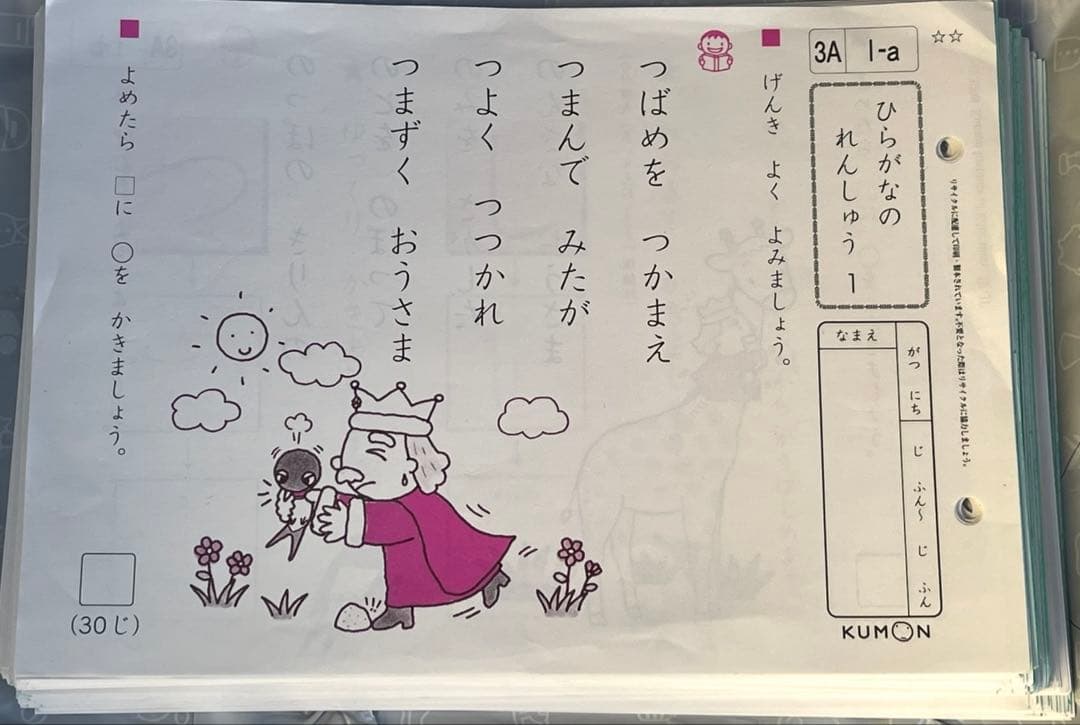 ☆☆
3A 1-a
ひらがなの
れんしゅう 1
がつ にち じ ふん〜 じ ふん
なまえ
KUMON
げんき よく よみましょう。
つばめを つかまえ
つまんで みたが
つよく つつかれ
つまずく おうさま
よめたら □に ○を かきましょう。
(30じ)